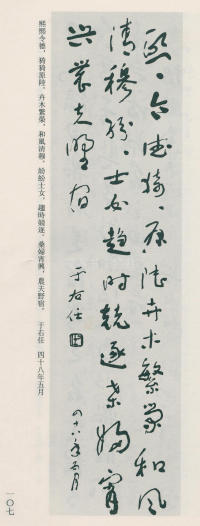 熙〻令德猗〻原陸卉木繁榮和風
清穆紛〻士女趨時競逐桑婦宵
興農夫野宿
于右任
四十八年五月
熙熙令德，猗猗原陸，卉木繁榮，和風清穆，紛紛士女，趨時競逐，桑婦宵興，農夫野宿。 于右任 四十八年五月
一〇七